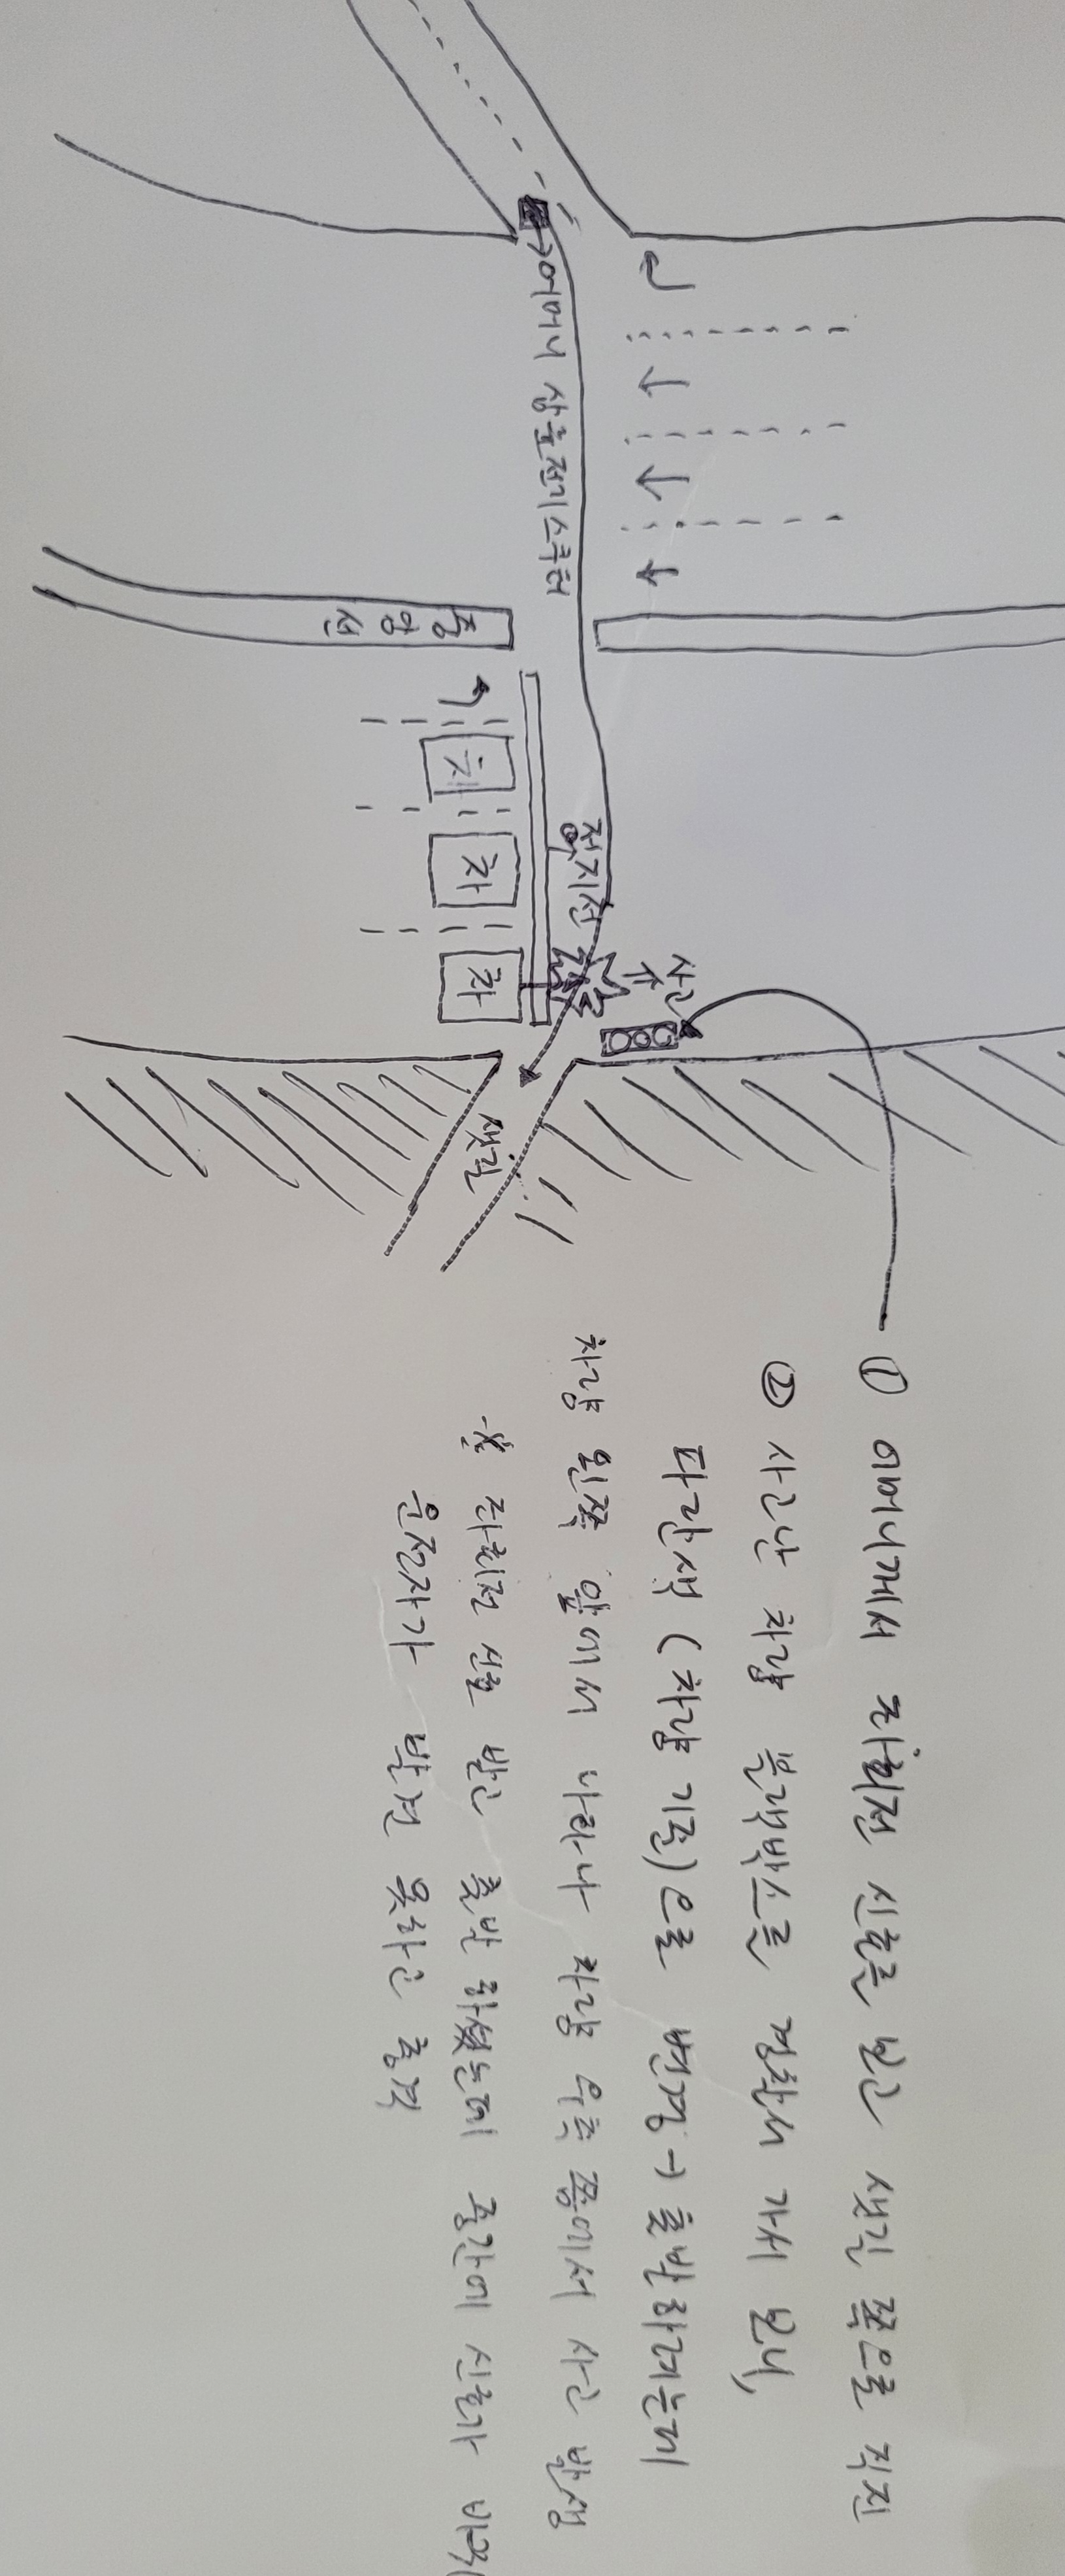 어머니 삼륜전기스쿠터
중앙선
차
차
차
정지선
사고
샛길
① 어머니께서 좌회전 신호를 보고 샛길 쪽으로 직진
② 사고난 차량 블랙박스를 경찰서 가서 보니,
파란색 (차량 기준)으로 변경 → 출발하려는데
차량 왼쪽 앞에서 나타나 차량 우측 쯤에서 사고 발생
좌회전 신호 받고 출발 하셨는데 중간에 신호가 바뀌
운전자가 발견 못하고 충격